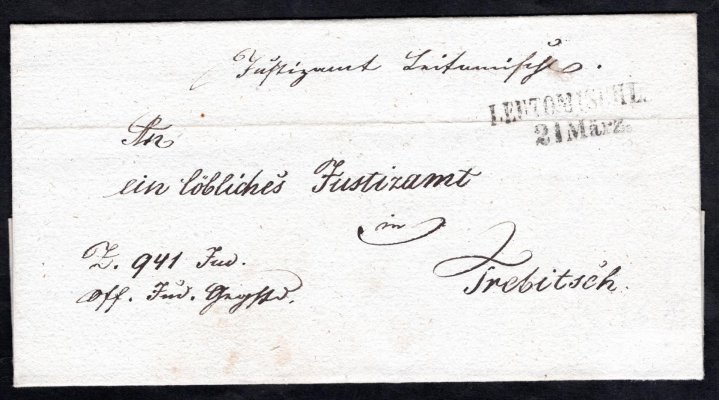 Justizamt Leitomischl.
LEUTOMYSCHL.
21 März.
An
ein löbliches Justizamt
in
Trebitsch.
Z. 941 Jud.
Off. Jud. Ggstd.